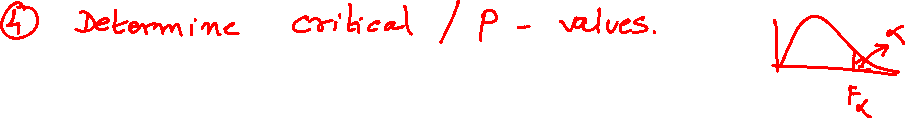 ④ Determine critical / P - values.
α
Fα